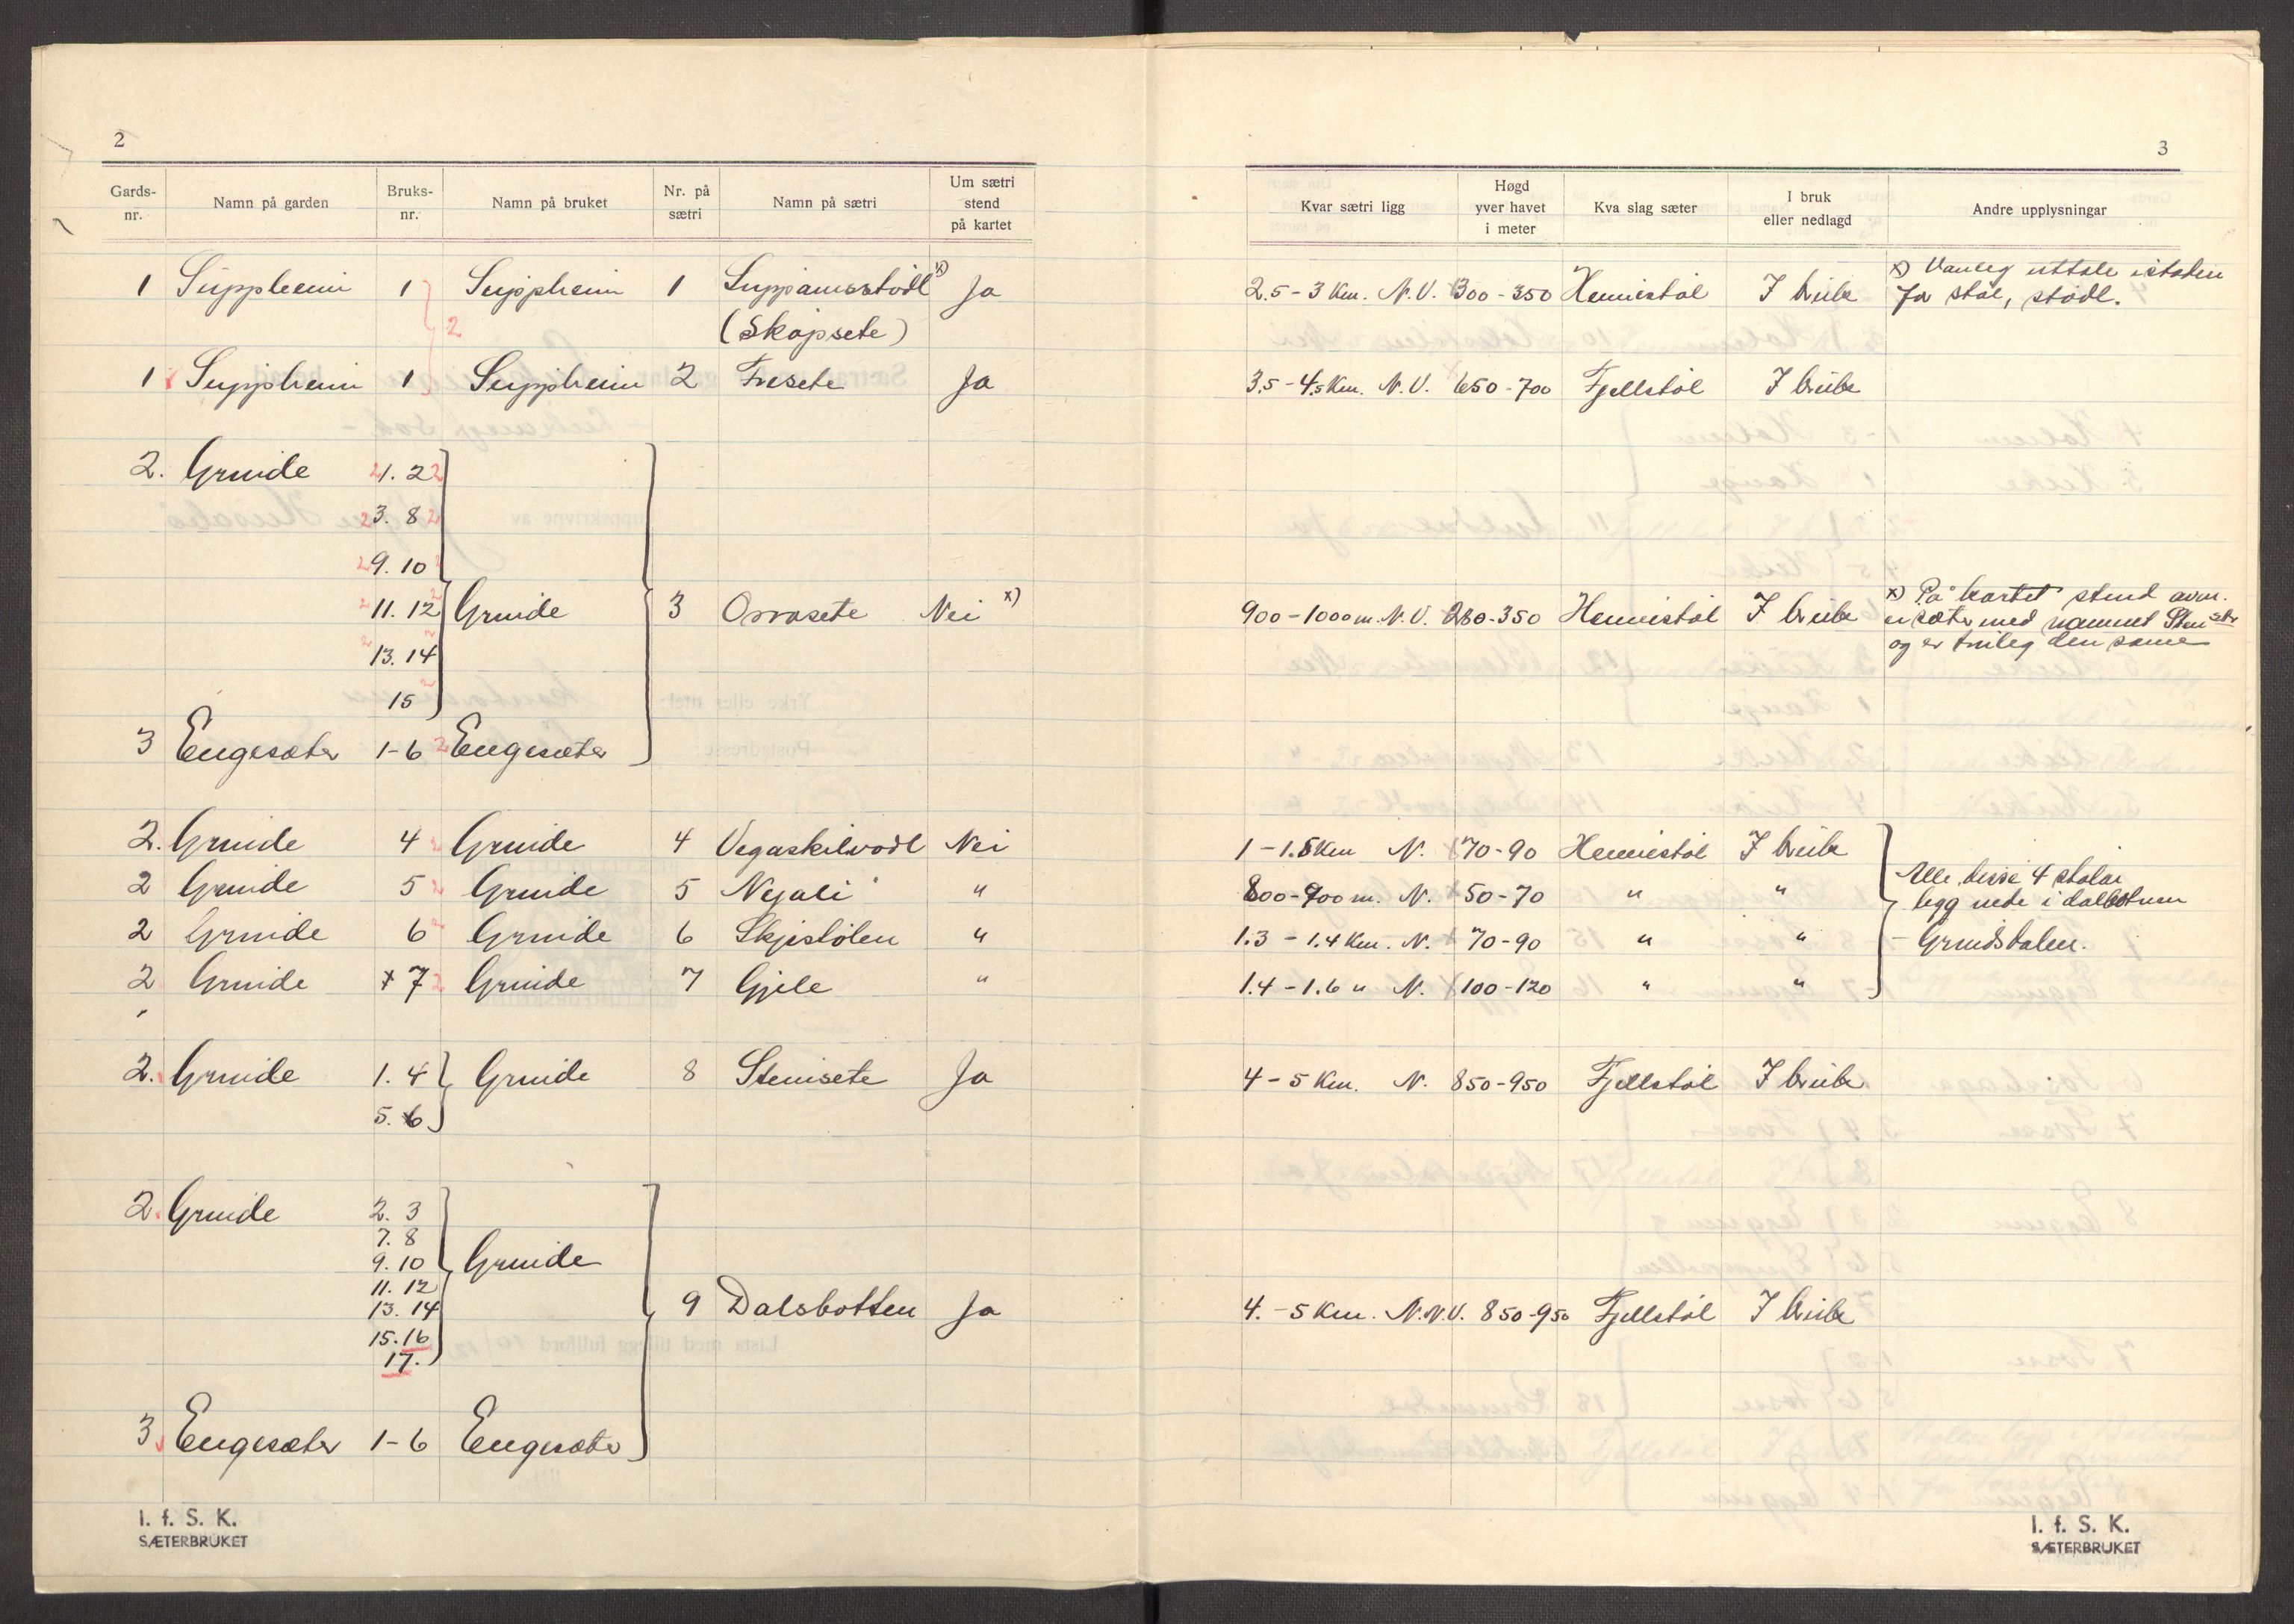 2
Gards-nr. Namn på garden Bruks-nr. Namn på bruket Nr. på sætri Namn på sætri Um sætri stend på kartet
1 Suppheim 1 Suppheim 1 Suppamsstødl x) Ja
2 (Skåpsete)
1 Suppheim 1 Suppheim 2 Fresete Ja
2. Grinde 1. 2
3. 8
9. 10
11. 12 Grinde 3 Orrasete Nei x)
13. 14
15
3 Engesæter 1-6 Engesæter
2. Grinde 4 Grinde 4 Nei
2 Grinde 5 Grinde 5 "
2 Grinde 6 Grinde 6 Skjestølen "
2 Grinde x 7 Grinde 7 Gjele "
2. Grinde 1. 4 Grinde 8 Steinsete Ja
5. 6
2. Grinde 2. 3
7. 8
9. 10 Grinde
11. 12
13. 14 9 Dalsbotten Ja
15. 16
17.
3 Engesæter 1-6 Engesæter
I. f. S. K.
SÆTERBRUKET
3
Kvar sætri ligg Høgd yver havet i meter Kva slag sæter I bruk eller nedlagd Andre upplysningar
2.5 - 3 Km. N.V. 300 - 350 Heimestøl I bruk x) Vanleg uttale istaden
for støl, stødl.
3.5 - 4.5 Km. N.V. 650 - 700 Fjellstøl I bruk
900 - 1000 m. N.V. 280 - 350 Heimestøl I bruk x) På kartet stend
ei sæter med namnet
og er truleg den same
1 - 1.5 Km N. 70 - 90 Heimestøl I bruk
800 - 900 m. N. 50 - 70 " " Alle disse 4 stølar
ligg nede i dalbotnen
1.3 - 1.4 Km. N. 70 - 90 " " - Grindsdalen.
1.4 - 1.6 " N. 100 - 120 " "
4 - 5 Km. N. 850 - 950 Fjellstøl I bruk
4. - 5 Km. N.N.V. 850 - 950 Fjellstøl I bruk
I. f. S. K.
SÆTERBRUKET